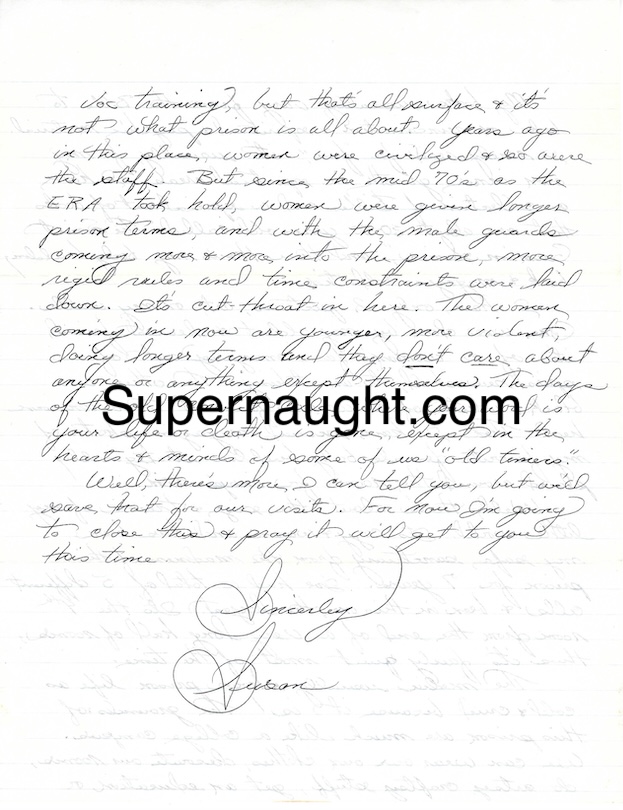 Voc training, but that's all surface & it's
not what prison is all about. Years ago
in this place, women were civilized & so were
the staff. But since the mid 70's as the
ERA took hold, women were given longer
prison terms, and with the male guards
coming more & more into the prison, more
rigid rules and time constraints were laid
down. It's cut-throat in here. The women
coming in now are younger, more violent,
doing longer terms and they don't care about
anyone or anything except themselves. The days
of the old word is
Supernaught.com
your life or death is gone, except in the
hearts & minds of some of us "old timers."
Well, there's more I can tell you, but we'll
save that for our visits. For now I'm going
to close this & pray it will get to you
this time.
Sincerley
Susan